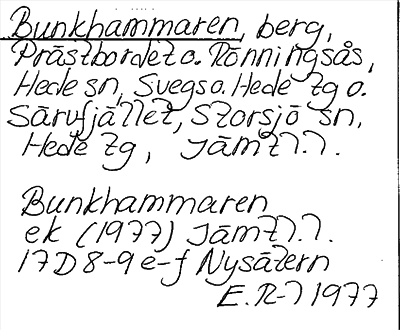 Bunkhammaren, berg,
Prästbordet o. Rönningsås,
Hede sn, Svegs o. Hede tg o.
Särvfjället, Storsjö sn,
Hede tg, Jämtl.
Bunkhammaren
ek (1977) Jämtl.
17D 8-9 e-f Nysätern
E.R-l 1977